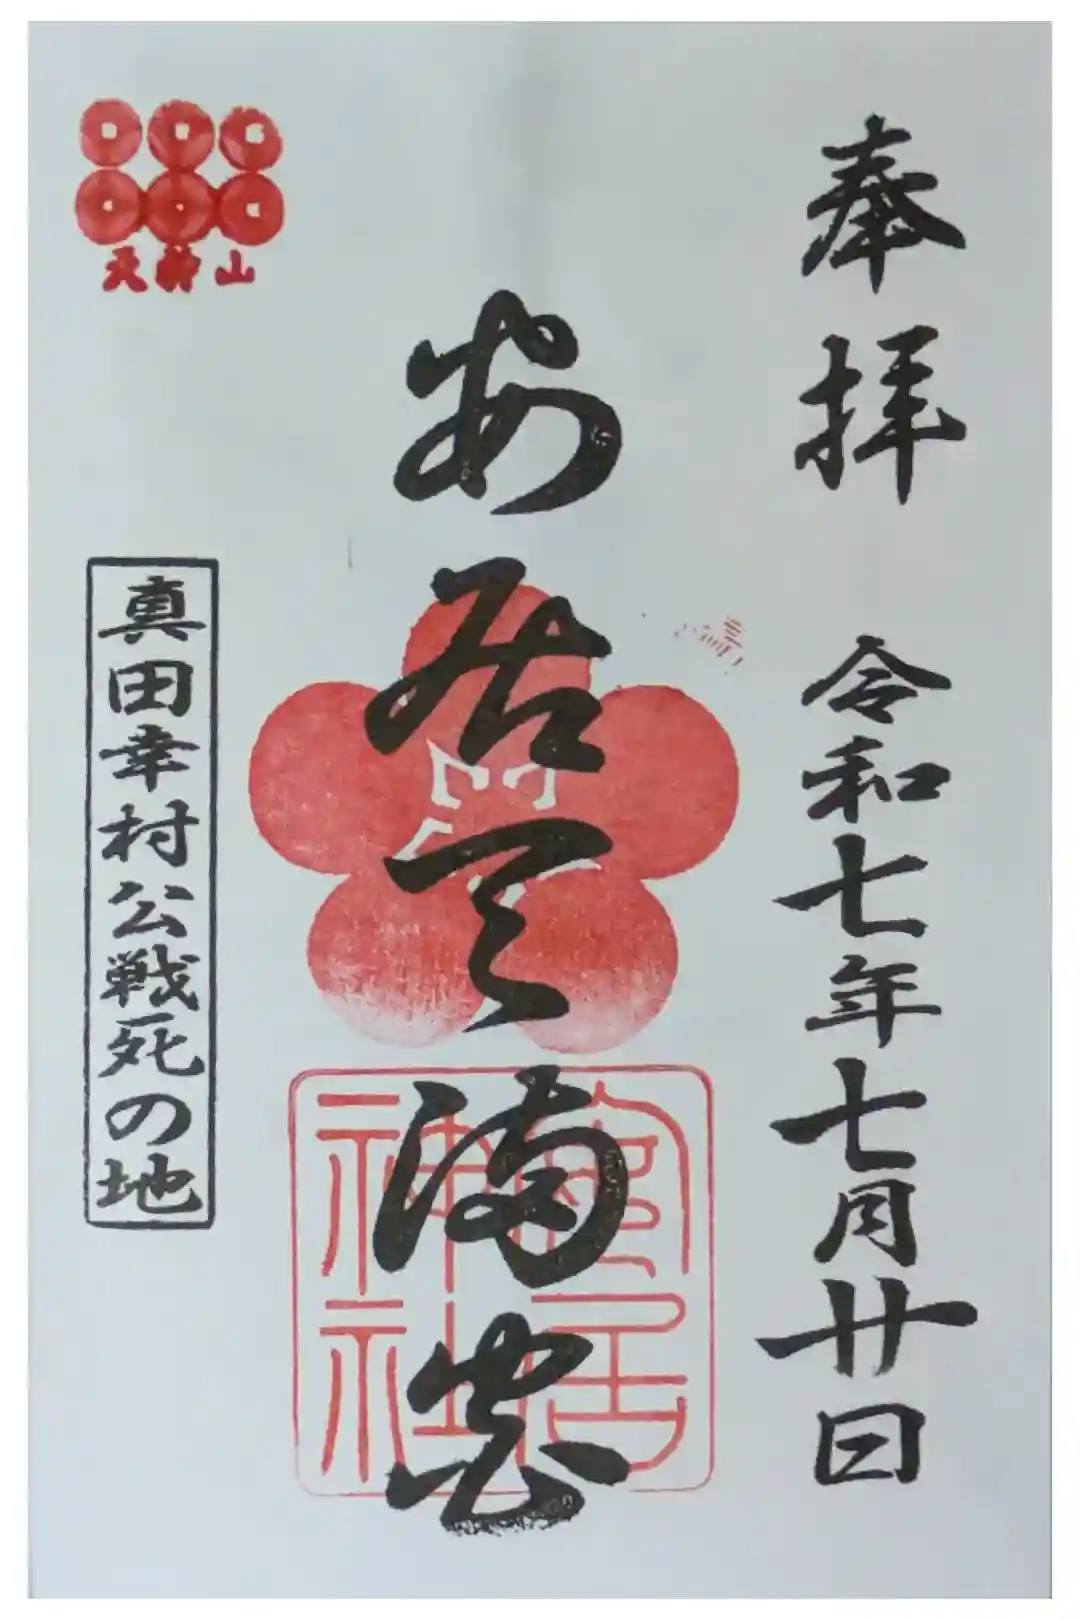 奉拝
令和七年七月廿日
安居天満宮
安居
神社
天神山
真田幸村公戦死の地